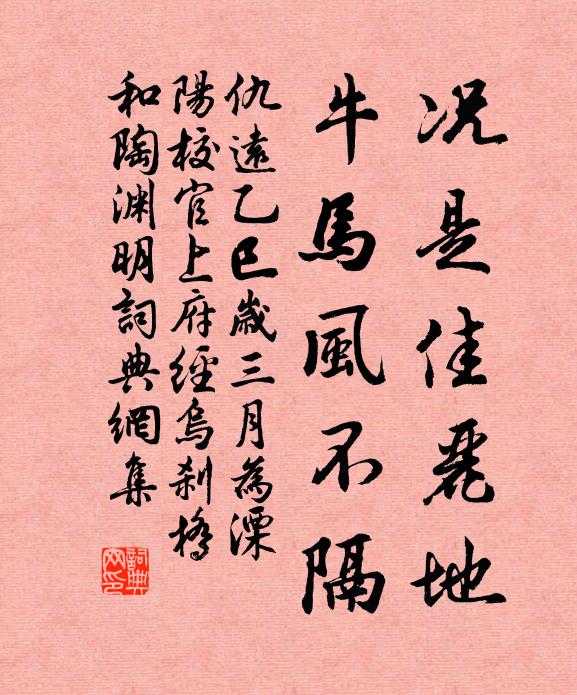 况是佳麗地
牛馬風不隔
仇遠乙巳歲三月為溧
陽校官上府經烏刹橋
和陶淵明詞典網集
詞典网印